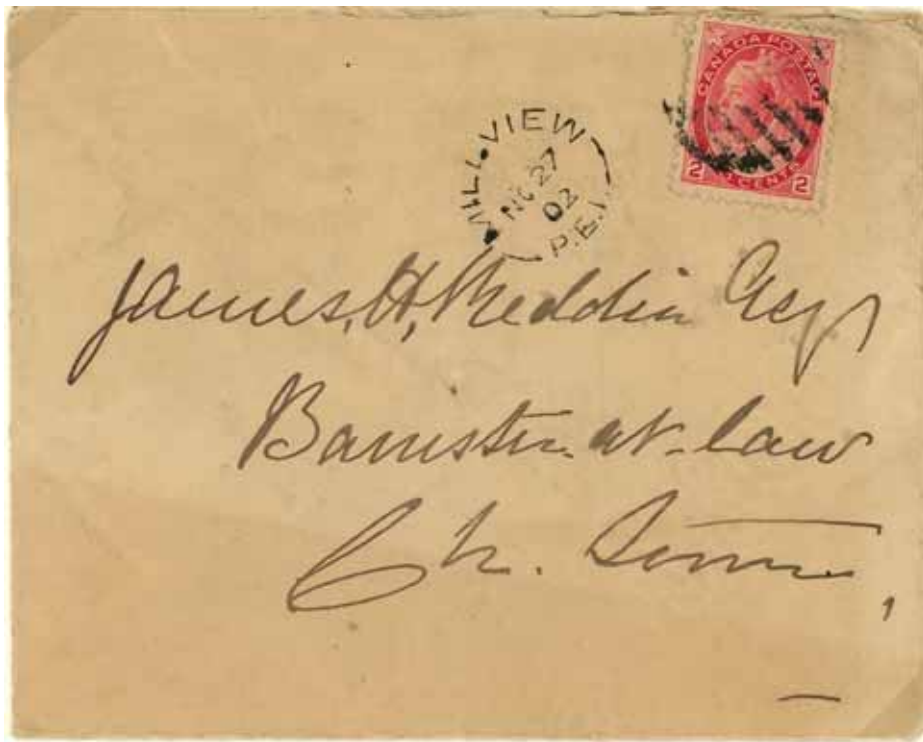 CANADA POSTAGE
2 CENTS 2
MILL VIEW
NO 27
02
P.E.I.
James, H, Reddin Esqr
Barrister at-law
Ch. Town,